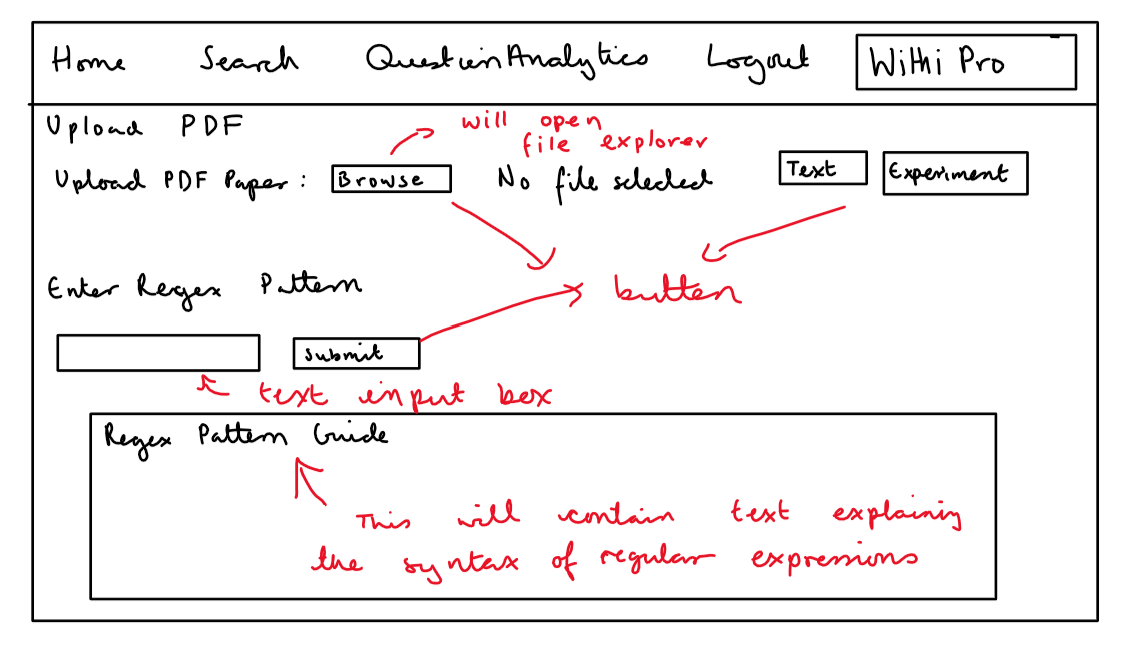 Home Search QuestionAnalytics Logout Withi Pro
Upload PDF
will open
file explorer
Upload PDF Paper: Browse No file selected Text Experiment
Enter Regex Pattern
button
Submit
text input box
Regex Pattern Guide
This will contain text explaining
the syntax of regular expressions